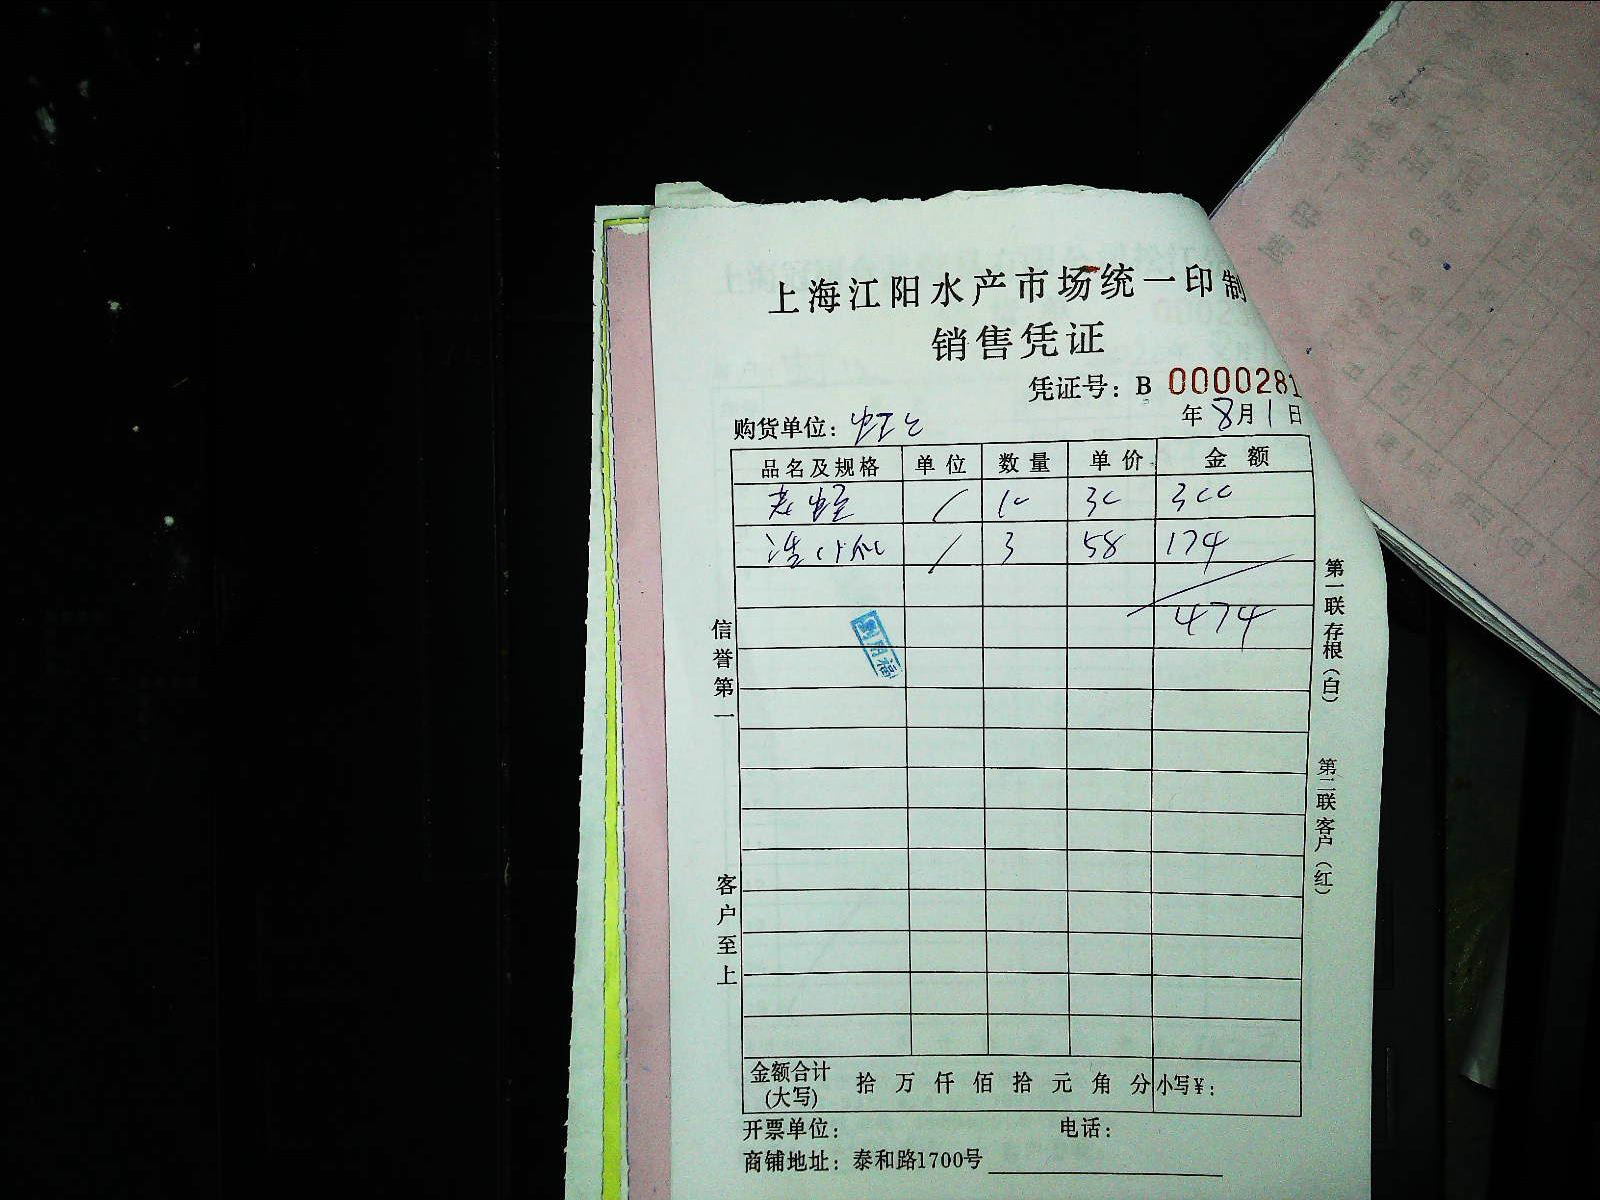 上海江阳水产市场统一印制
销售凭证
凭证号: B 0000281
年8月1日
购货单位:
品名及规格 单位 数量 单价 金额
/ 10 30 300
/ 3 58 174
474
信誉第一
客户至上
第一联存根(白)
第二联客户(红)
金额合计(大写) 拾 万 仟 佰 拾 元 角 分 小写¥:
开票单位: 电话:
商铺地址: 泰和路1700号